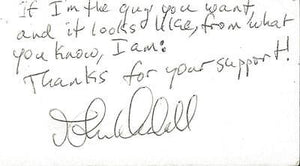 if I'm the guy you want,
and it looks like, from what
you know, I am!
Thanks for your support!